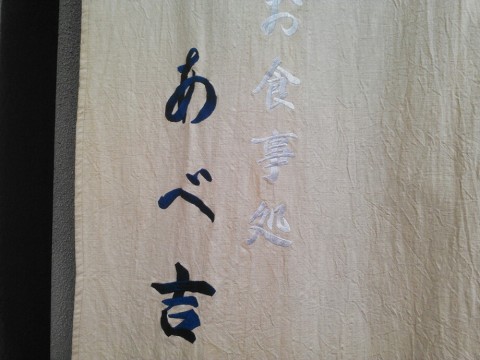 お食事処
あべ吉